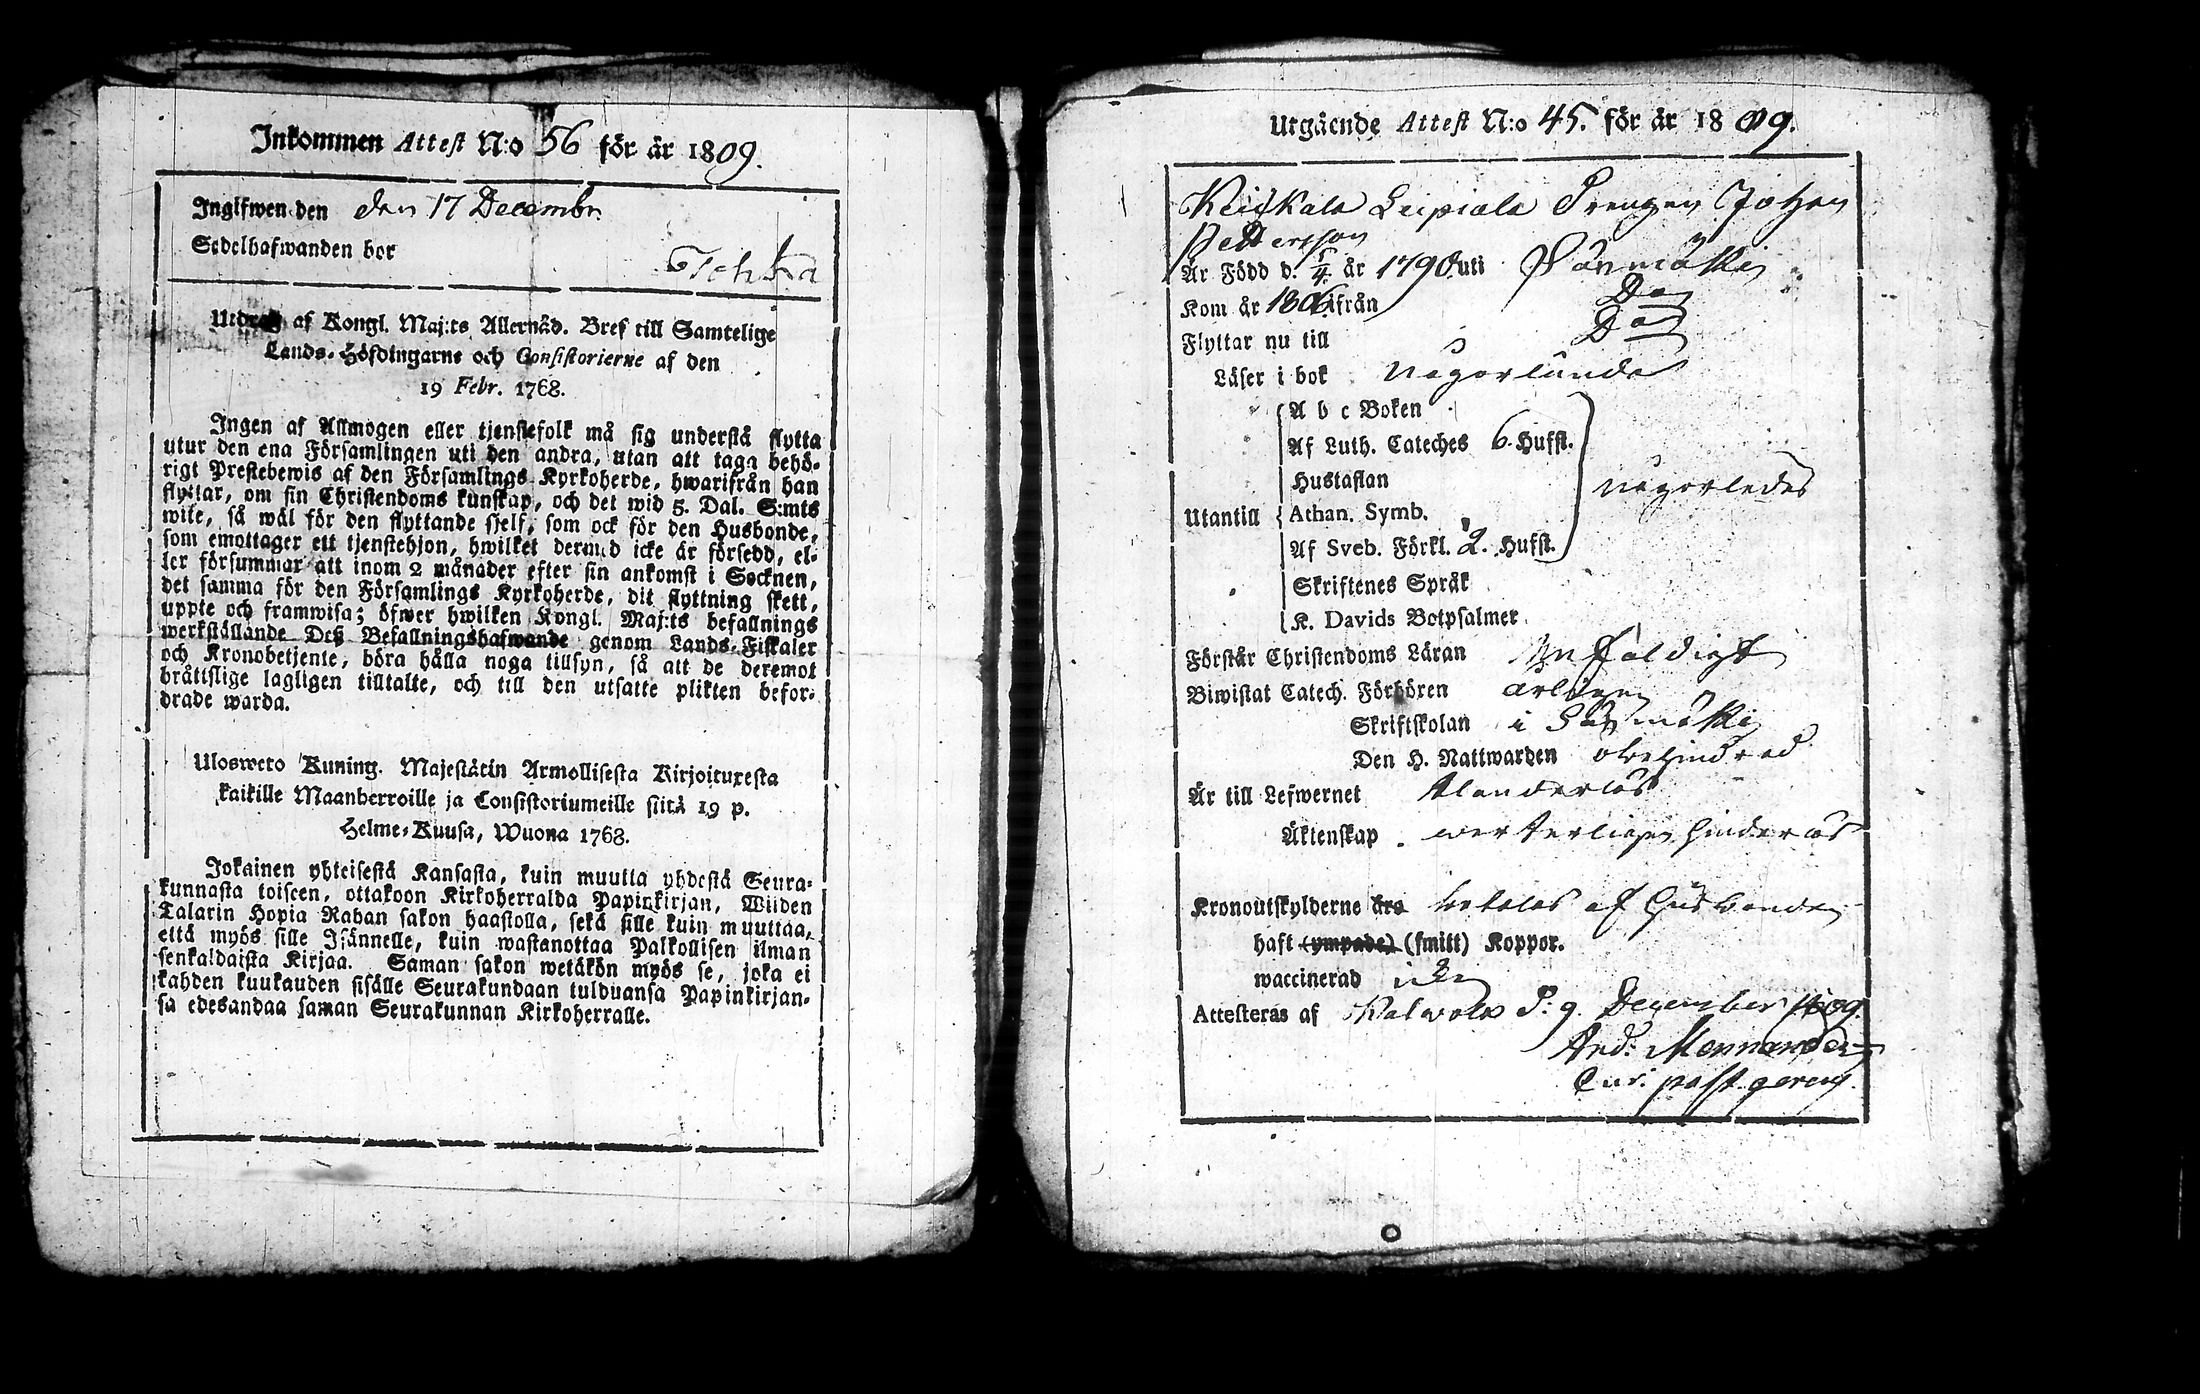 Inkommen Attest N:o 56 för år 1809.
Inglfwen den den 17 Decembr
Sedelhafwanden bor
Utdrag af Kongl. Maj:ts Allernåd. Bref till Samtelige
Lands-Höfdingarne och Consistorierne af den
19 Febr. 1768.
Ingen af Allmogen eller tjenstefolk må sig understå flytta
utur den ena Församlingen uti den andra, utan att taga behö-
rigt Prestebewis af den Församlings Kyrkoherde, hwarifrån han
flyttar, om sin Christendoms kunskap, och det wid 5. Dal. S:mts
wite, så wäl för den flyttande sjelf, som ock för den Husbonde,
som emottager ett tjenstehjon, hwilket dermed icke är försedd, el-
ler försummar att inom 2 månader efter sin ankomst i Socknen,
det samma för den Församlings Kyrkoherde, dit flyttning skett,
uppte och framwisa; öfwer hwilken Kongl. Maj:ts befallnings
werkställande Deß Befallningshafwande genom Lands-Fiskaler
och Kronobetjente, böra hålla noga tillsyn, så att de deremot
bråttslige lagligen tilltalte, och till den utsatte plikten befor-
drade warda.
Ulosweto Kuning. Majestätin Armollisesta Kirjoituxesta
kaikille Maanherroille ja Consistoriumeille siitä 19 p.
Helme-Kuusa, Wuona 1768.
Jokainen yhteisestä Kansasta, kuin muutta yhdestä Seura-
kunnasta toiseen, ottakoon Kirkoherralda Papinkirjan, Wiiden
Talarin Hopia Rahan sakon haastolla, sekä sille kuin muuttaa,
että myös sille Isännelle, kuin wastanottaa Palkollisen ilman
senkaldaista Kirjaa. Saman sakon wetäkön myös se, joka ei
kahden kuukauden sisälle Seurakundaan tulduansa Papinkirjan-
sa edesandaa saman Seurakunnan Kirkoherralle.
Utgående Attest N:o 45. för år 1809.
Leipiala Drengen Johan
Pettersson
Är Född d. 5/4. år 1790. uti Sarimäki
Kom år 1806 ifrån Do
Flyttar nu till Do
Läser i bok någorlunda
A b c Boken
Af Luth. Cateches 6. Hufst.
Hustaflan
Utantill Athan. Symb. någorledes
Af Sveb. Förkl. 2. Hufst.
Skriftenes Språk
K. Davids Botpsalmer
Förstår Christendoms Läran Enfaldigt
Biwistat Catech. Förhören årligen
Skriftskolan i
Den H. Nattwarden obehindrad
Är till Lefwernet klanderlös
Äktenskap
Kronoutskylderne äro betalas af Husbonden
haft (ympade) (smitt) Koppor.
waccinerad icke
Attesteras af Kalvola d. 9. December 1809.
And: Mennander
Cur. past. gerens.